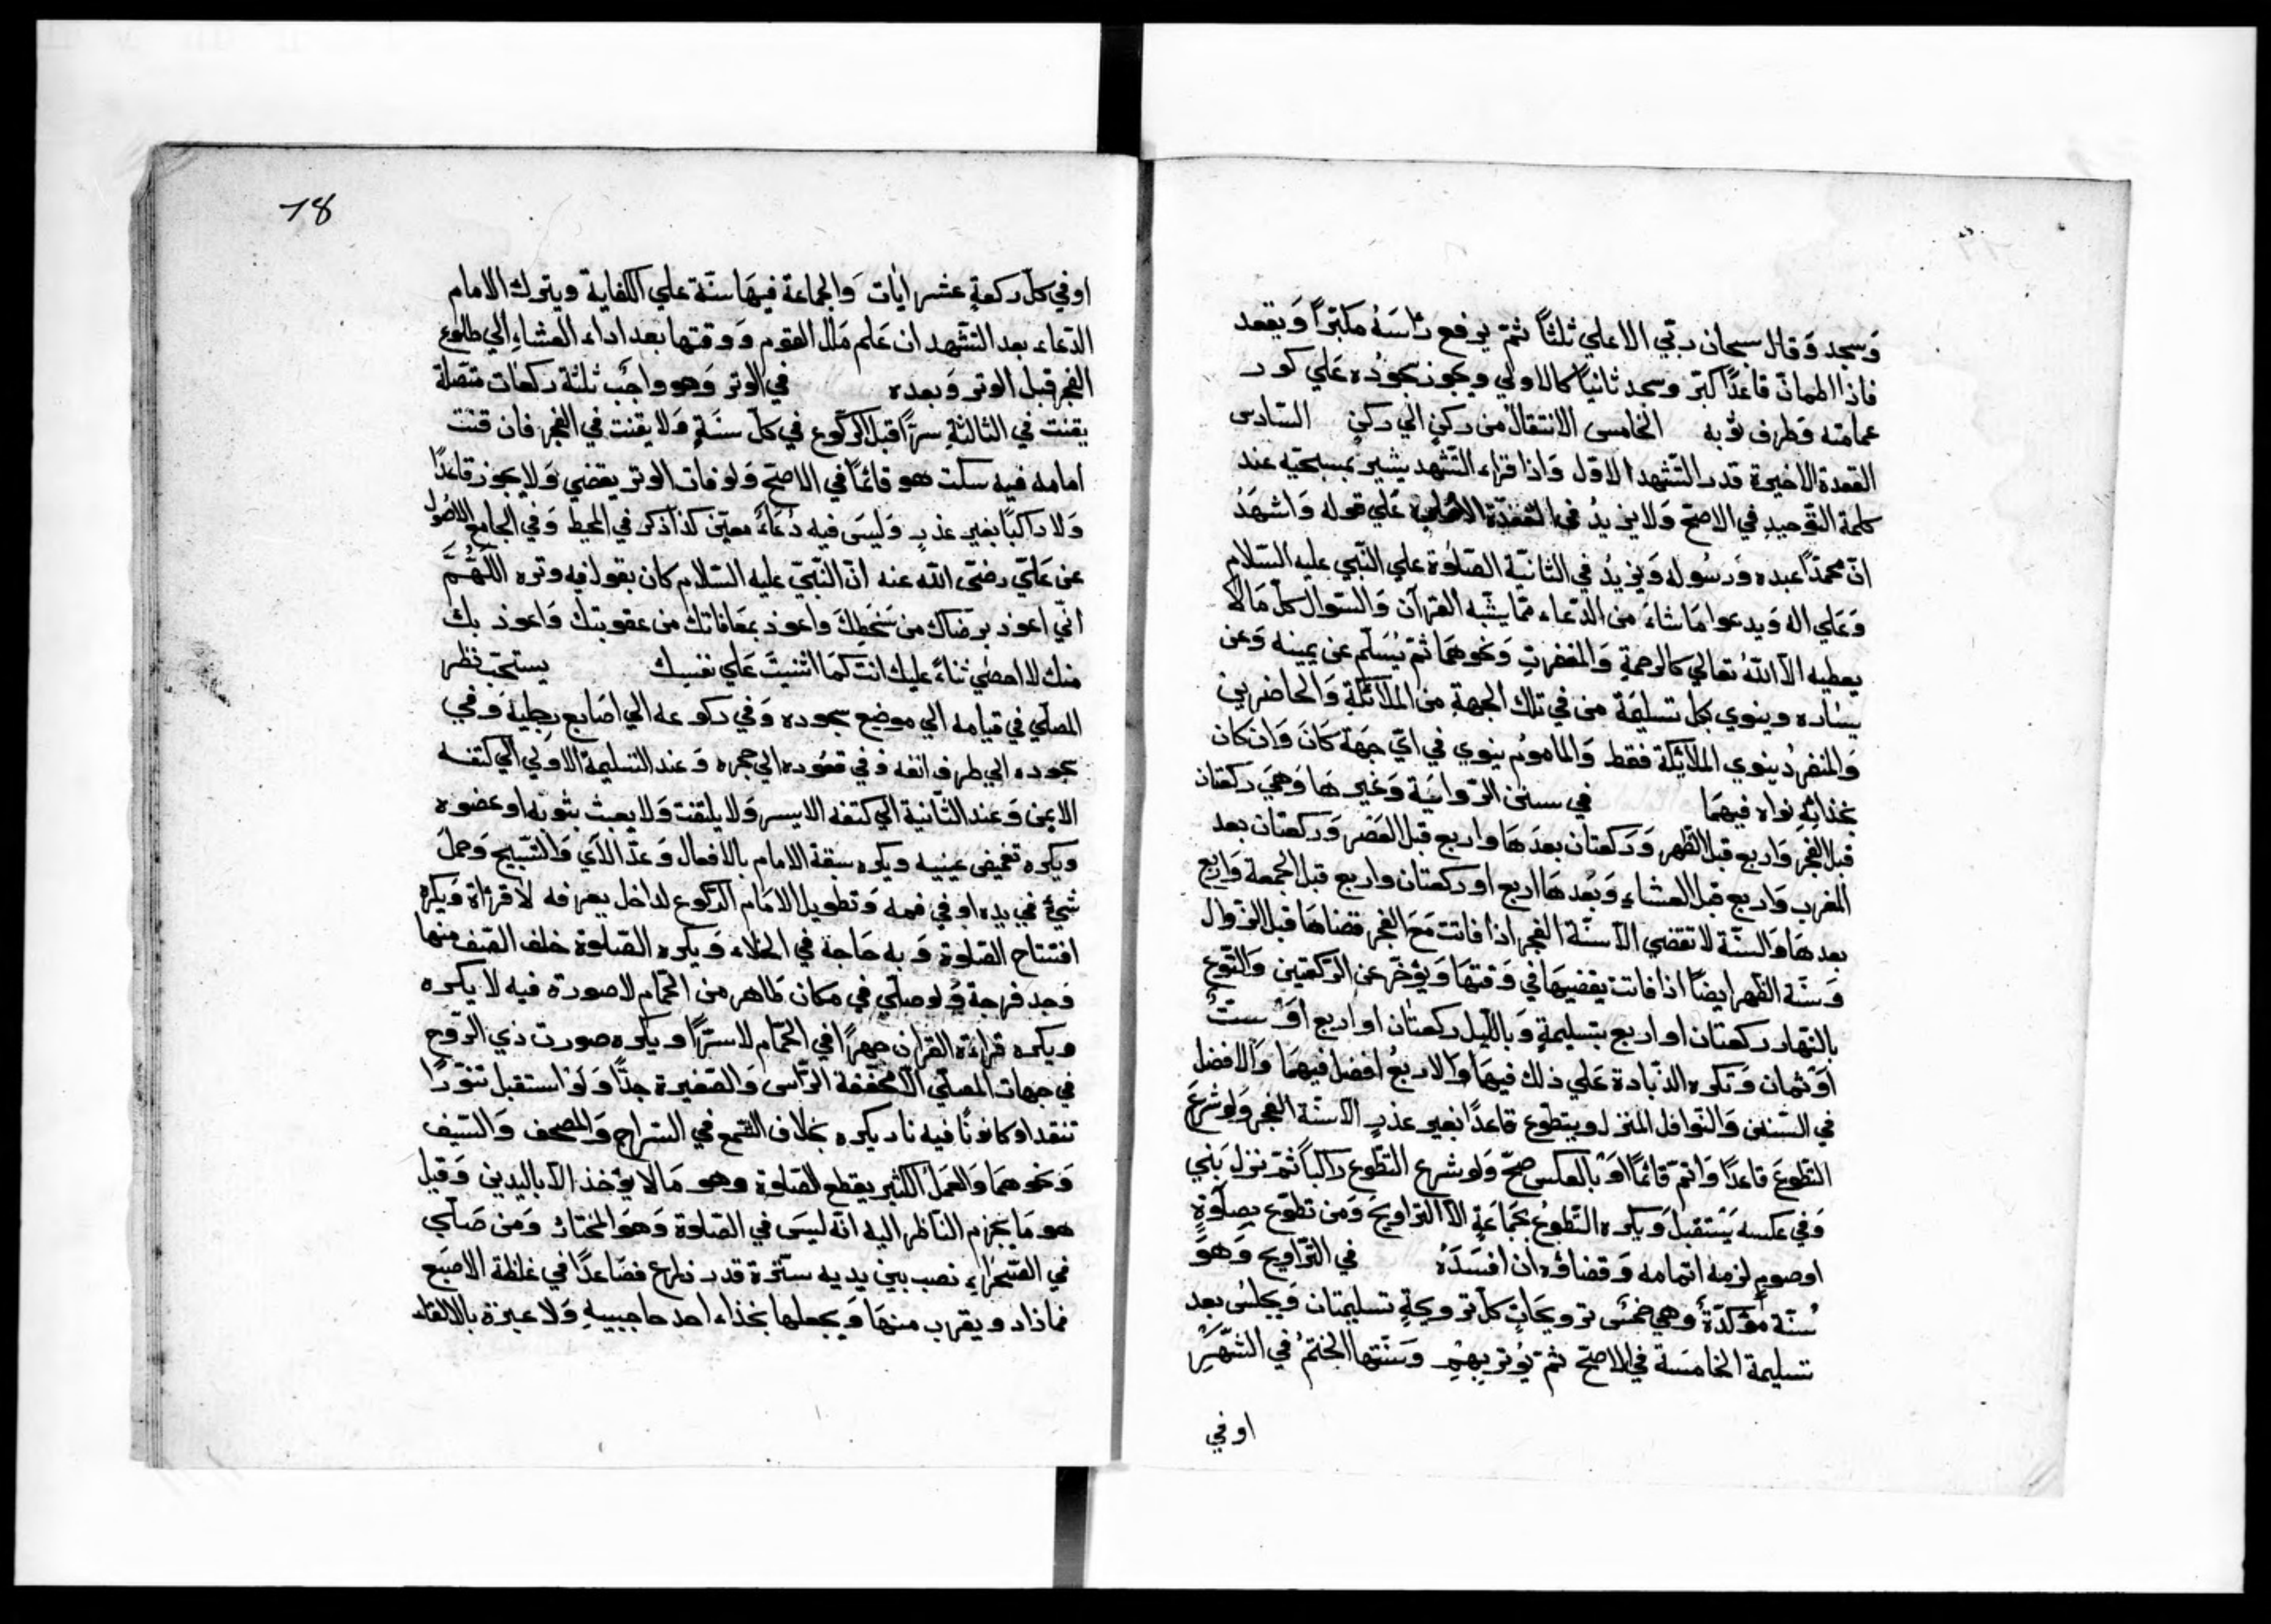 وَسجد وَقال سبحان ربّي الاعلي ثلثاً ثمّ يرفع رَاسَهُ مكبّراً وَيقعد
فاذا اطمانّ قاعداً كبّر وسجد ثانياً كالاولي ويجوز سجُودُه عَلي كور
عمامته وَطرف ثوبه الخامس الانتقال من ركنٍ الي ركنٍ السّادس
القعدة الاخيرة قدر التّشهد الاوّل وَاذا قراء التّشهد يشير بمسبحّته عند
كلمة التّوحيد في الاصحّ وَلا يزيدُ في القعدة الاولي عَلي قوله وَاشهَدُ
انّ محمّداً عبده وَرسُوله وَيزيدُ في الثانيّة الصّلوة علي النّبي عليه السّلام
وَعَلي اله وَيدعوا مَا شاءَ من الدّعاء ممّا يشبّه القرآن وَالسّوال كلّ مَا لا
يعطيه الاّ اللهُ تعالي كالرحمةِ وَالمغفرتِ وَنحوهمَا ثمّ يُسَلّم عن يمينه وَعن
يسَاره وينوي بكلّ تسليمَة من في تلك الجهةِ من الملائكة وَالحاضرين
وَالمنفردُ ينوي الملائكة فقط وَالمامومُ ينوي في ايّ جهَة كَانَ وَان كان
بحذائِهِ نواه فيهمَا في سنن الرّواتبة وَغيرهَا وَهيَ ركعتان
قبل الفجر وَاربع قبل الظّهر وَرَكعتان بعدَهَا واربع قبل العَصْر وَركعتان بعد
المغرب وَاربع قبل العشاءِ وَبَعْدهَا اربع او ركعتان واربع قبل الجمعة وَاربع
بعدهَا وَالسنّة لا تقضي الاّ سنّة الفجر اذا فاتت مَعَ الفجر قضاهَا قبل الزّوال
وَسنّة الظّهر ايضاً اذا فاتت يقضيهَا في وَقتهَا وَيؤخّر عن الرّكعتين وَالتّوع
بالنّهار ركعتان او اربع بتسليمةٍ وَباللّيل ركعتان او اربع اَوْ ستّ
اَوْ ثمان وَتكره الزّيادة عَلي ذلك فيهمَا وَالاربعُ افضل فيهمَا وَالافضل
في السّنن وَالنّوافل المنزل ويتطّوع قاعداً بغير عذرٍ الاّ سنّة الفجر وَلو شرعَ
التطّوعَ قاعداً وَاتمّ قائماً اَوْ بالعكس صحّ وَلو شرع التطّوع راكباً ثمّ نزل بَني
وَفي عكسه يَسْتقبلُ وَيكره التّطوعُ بجَمَاعَةٍ الاّ التّراويحَ وَمن تطوّع بصلوةٍ
اوصومٍ لزمهُ اتمامه وَقضاؤه ان افسَدَهُ في التّراويح وَهوَ
سُنّة مؤكدّةٌ وَهي خمسُ ترويحَاتٍ كلّ ترويحةٍ تسليمتان وَيجلسُ بعد
تسليمة الخامسَة في الاصحّ ثمّ يُوتر بهِمْ وَسنّتها الختمُ في الشّهرِ
او في
78
او في كلّ ركعةٍ عشر ايَات وَالجماعة فيهَا سنّة علي الكفاية ويترك الامام
الدّعاء بعد التشّهد ان عَلم مَلل القوم وَوقتها بعد اداء العشاءِ الي طلوع
الفجر قبل الوتر وَبعده في الوتر وَهو واجب ثلثة ركعَات متّصلة
يقنت في الثالثةِ سرّاً قبل الرّكوع في كلّ سنَةٍ وَلا يقنت في الفجر فان قنت
امامه فيه سكت هو قائماً في الاصحّ وَلو فات الوتر يقضي وَلا يجوز قاعداً
وَلا راكباً بغير عذرٍ وَليسَ فيه دُعَاءٌ معيّن كذا ذكر في المحيط وَفي الجامع الاصُول
عن عَليّ رضيَ الله عنه انّ النّبيّ عليه السّلام كان يقول في وتره اللّهُمَّ
انّي اعوذ برضاك من سَخطِكَ وَاعوذ بمَعَافاتك من عقوبتك وَاعوذ بك
منك لا احصي ثناءً عليك انت كمَا اثنيتَ عَلي نفسِك يستحبّ نظر
المصلّي في قيامه الي موضع سجوده وَفي ركوعه الي اصَابع رجليهِ وَفي
سجوده الي طرف انفه وَفي قعُوده الي حجره وَعند التسليمة الاولي الي كتفه
الايمن وَعند الثّانية الي كتفه الايسر وَلا يلتفت وَلا يعبث بثوبه او عضوه
ويكره تغميض عينيه ويكره سبقة الامام بالافعال وَعدّ الآي وَالتّسبيح وَحمل
شيْءٍ في يده او في فمه وَتطويل الامَام الرّكوع لداخل يعرفه لا قرائة وَيكره
افتتاح الصّلوة وَبه حَاجة في الخلاء وَيكره الصّلوة خلف الصّف منها
وَجد فرجة وَلو صلّي في مكان طاهر من الحمّام لا صورة فيه لا يكره
ويكره قراءة القرآن جهراً في الحمّام لا سرّاً ويكره صورت ذي الرّوح
في جهات المصلّي الاّ مخفّفة الرّاس وَالصّغيرة جدّاً وَلَوْ استقبل تنوّراً
تتقد او كانوناً فيه نار يكره بخلاف الشّمع في السّراج وَالمصحف وَالسّيف
وَنحوهمَا وَالعَمَل الكثير يقطع الصّلوة وهو مَا لا يؤخذ الاّ باليدين وَقيل
هو مَا يجزم النّاظر اليه انّه ليسَ في الصّلوة وَهوَ المختار وَمن صَلّي
في الصّحراءِ نصب بين يديه سترة قدر ذراع فصَاعداً في غلظة الاصبَع
فمازاد ويقرب منهَا وَيجعلها بحذاء احد حاجبيهِ وَلا عبرة بالالقاء